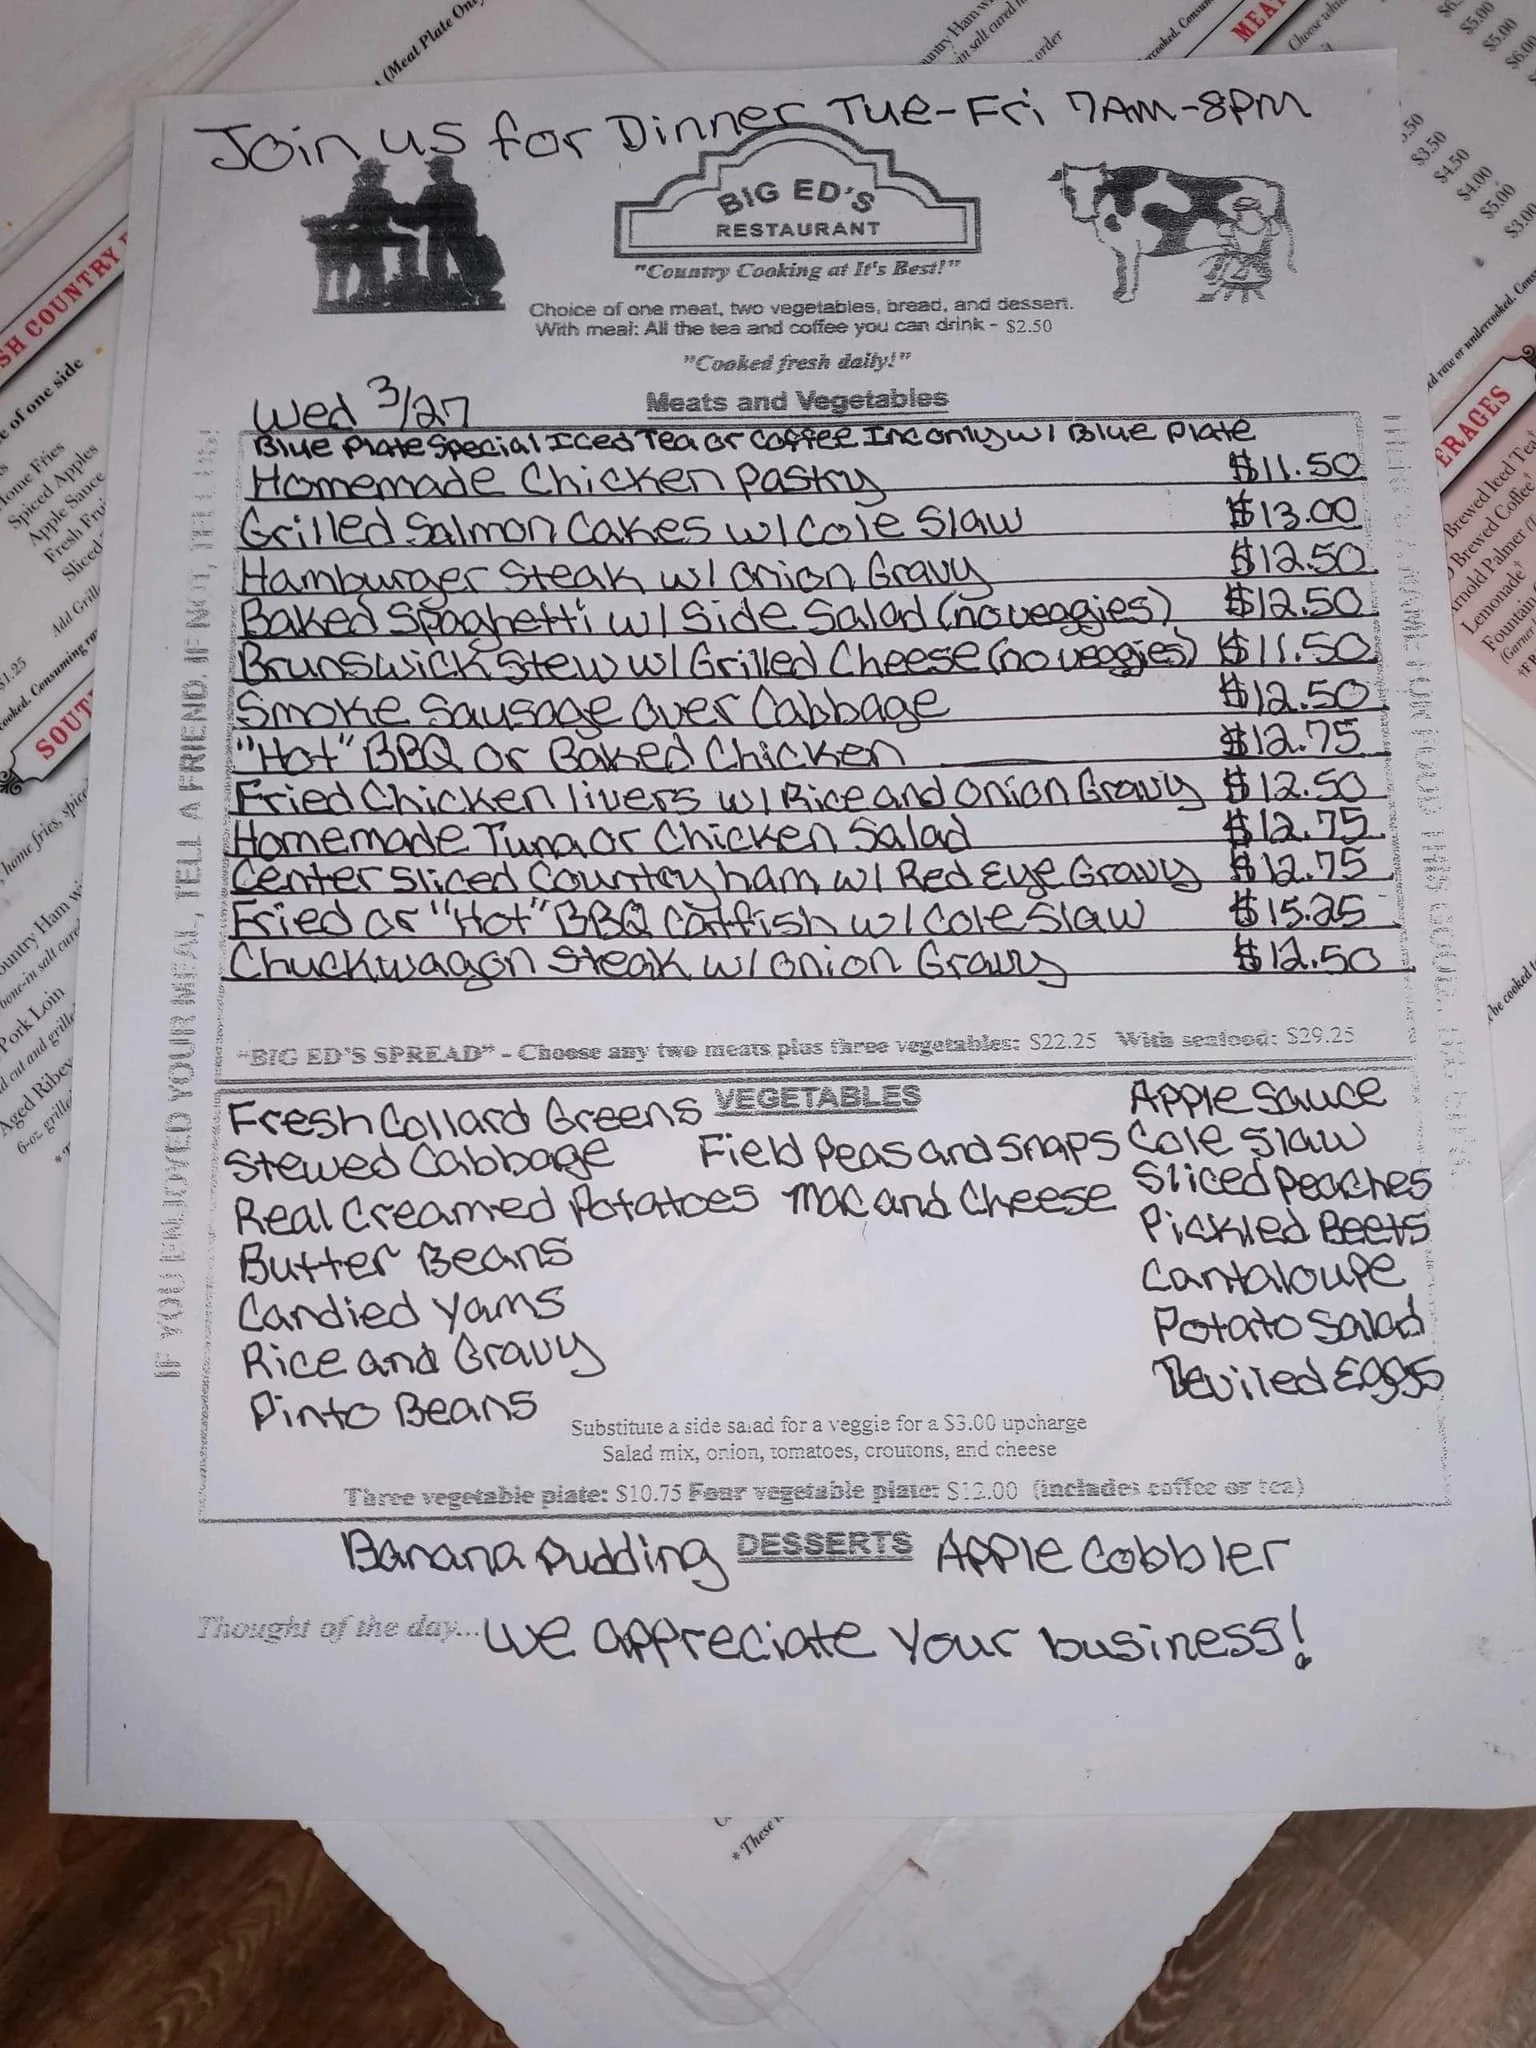 Join us for Dinner Tue-Fri 7AM-8PM
BIG ED'S
RESTAURANT
"Country Cooking at It's Best!"
Choice of one meat, two vegetables, bread, and dessert.
With meal: All the tea and coffee you can drink - $2.50
"Cooked fresh daily!"
Wed 3/27
Meats and Vegetables
Blue Plate Special Iced Tea or Coffee Inc only w/ Blue Plate
Homemade Chicken Pastry $11.50
Grilled Salmon Cakes w/ Cole Slaw $13.00
Hamburger Steak w/ Onion Gravy $12.50
Baked Spaghetti w/ Side Salad (no veggies) $12.50
Brunswick Stew w/ Grilled Cheese (no veggies) $11.50
Smoke Sausage over Cabbage $12.50
"Hot" BBQ or Baked Chicken $12.75
Fried Chicken livers w/ Rice and Onion Gravy $12.50
Homemade Tuna or Chicken Salad $12.75
Center Sliced Country ham w/ Red Eye Gravy $12.75
Fried or "Hot" BBQ Catfish w/ Cole Slaw $15.25
Chuckwagon Steak w/ Onion Gravy $12.50
"BIG ED'S SPREAD" - Choose any two meats plus three vegetables: $22.25 With seafood: $29.25
VEGETABLES
Fresh Collard Greens
Stewed Cabbage
Real Creamed Potatoes
Butter Beans
Candied Yams
Rice and Gravy
Pinto Beans
Field Peas and Snaps
Mac and Cheese
Apple Sauce
Cole Slaw
Sliced Peaches
Pickled Beets
Cantaloupe
Potato Salad
Deviled Eggs
Substitute a side salad for a veggie for a $3.00 upcharge
Salad mix, onion, tomatoes, croutons, and cheese
Three vegetable plate: $10.75 Four vegetable plate: $12.00 (includes coffee or tea)
Banana Pudding DESSERTS Apple Cobbler
Thought of the day... We appreciate your business!
IF YOU ENJOYED YOUR MEAL, TELL A FRIEND. IF NOT, TELL US!
(Meal Plate Only
of one side
Home Fries
Spiced Apples
Apple Sauce
Fresh Fru
Sliced
Add Grill
$1.25
Pork Loin
Aged Ribey
*These
MEA
$5.00
$5.00
$3.50
$4.50
$4.00
$5.00
ERAGES
Brewed Iced Tea
Brewed Coffee
Lemonade
Fountain